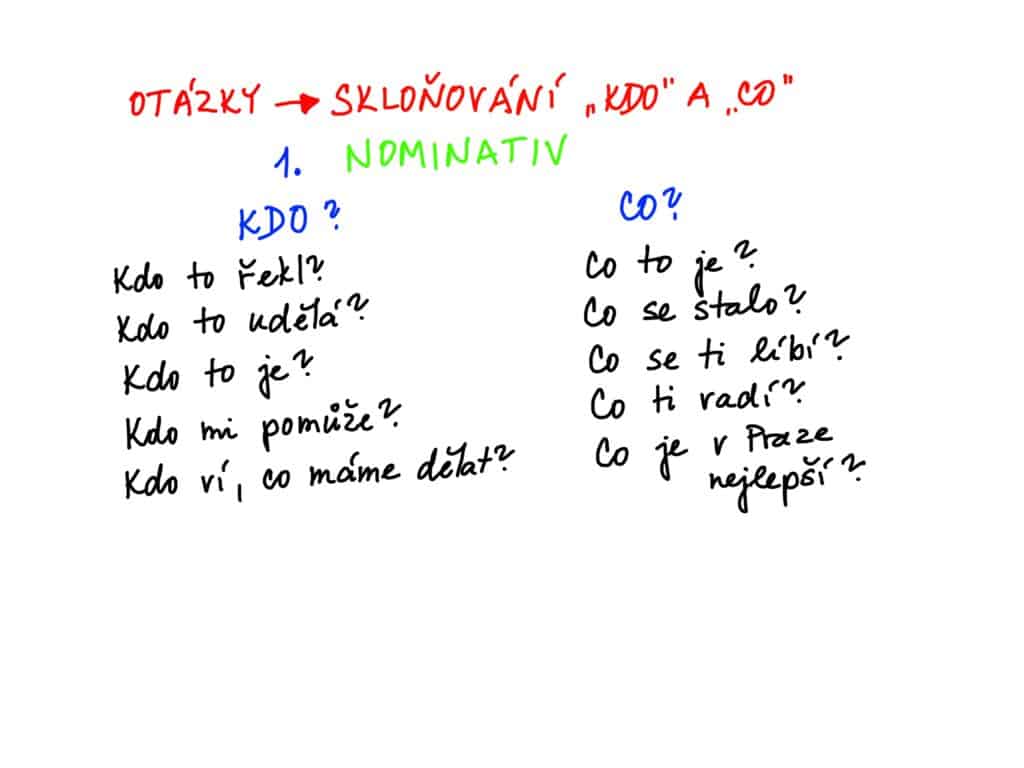 OTÁZKY → SKLOŇOVÁNÍ „KDO" A „CO"
1. NOMINATIV
KDO?
Kdo to řekl?
Kdo to udělá?
Kdo to je?
Kdo mi pomůže?
Kdo ví, co máme dělat?
CO?
Co to je?
Co se stalo?
Co se ti líbí?
Co ti radí?
Co je v Praze
nejlepší?